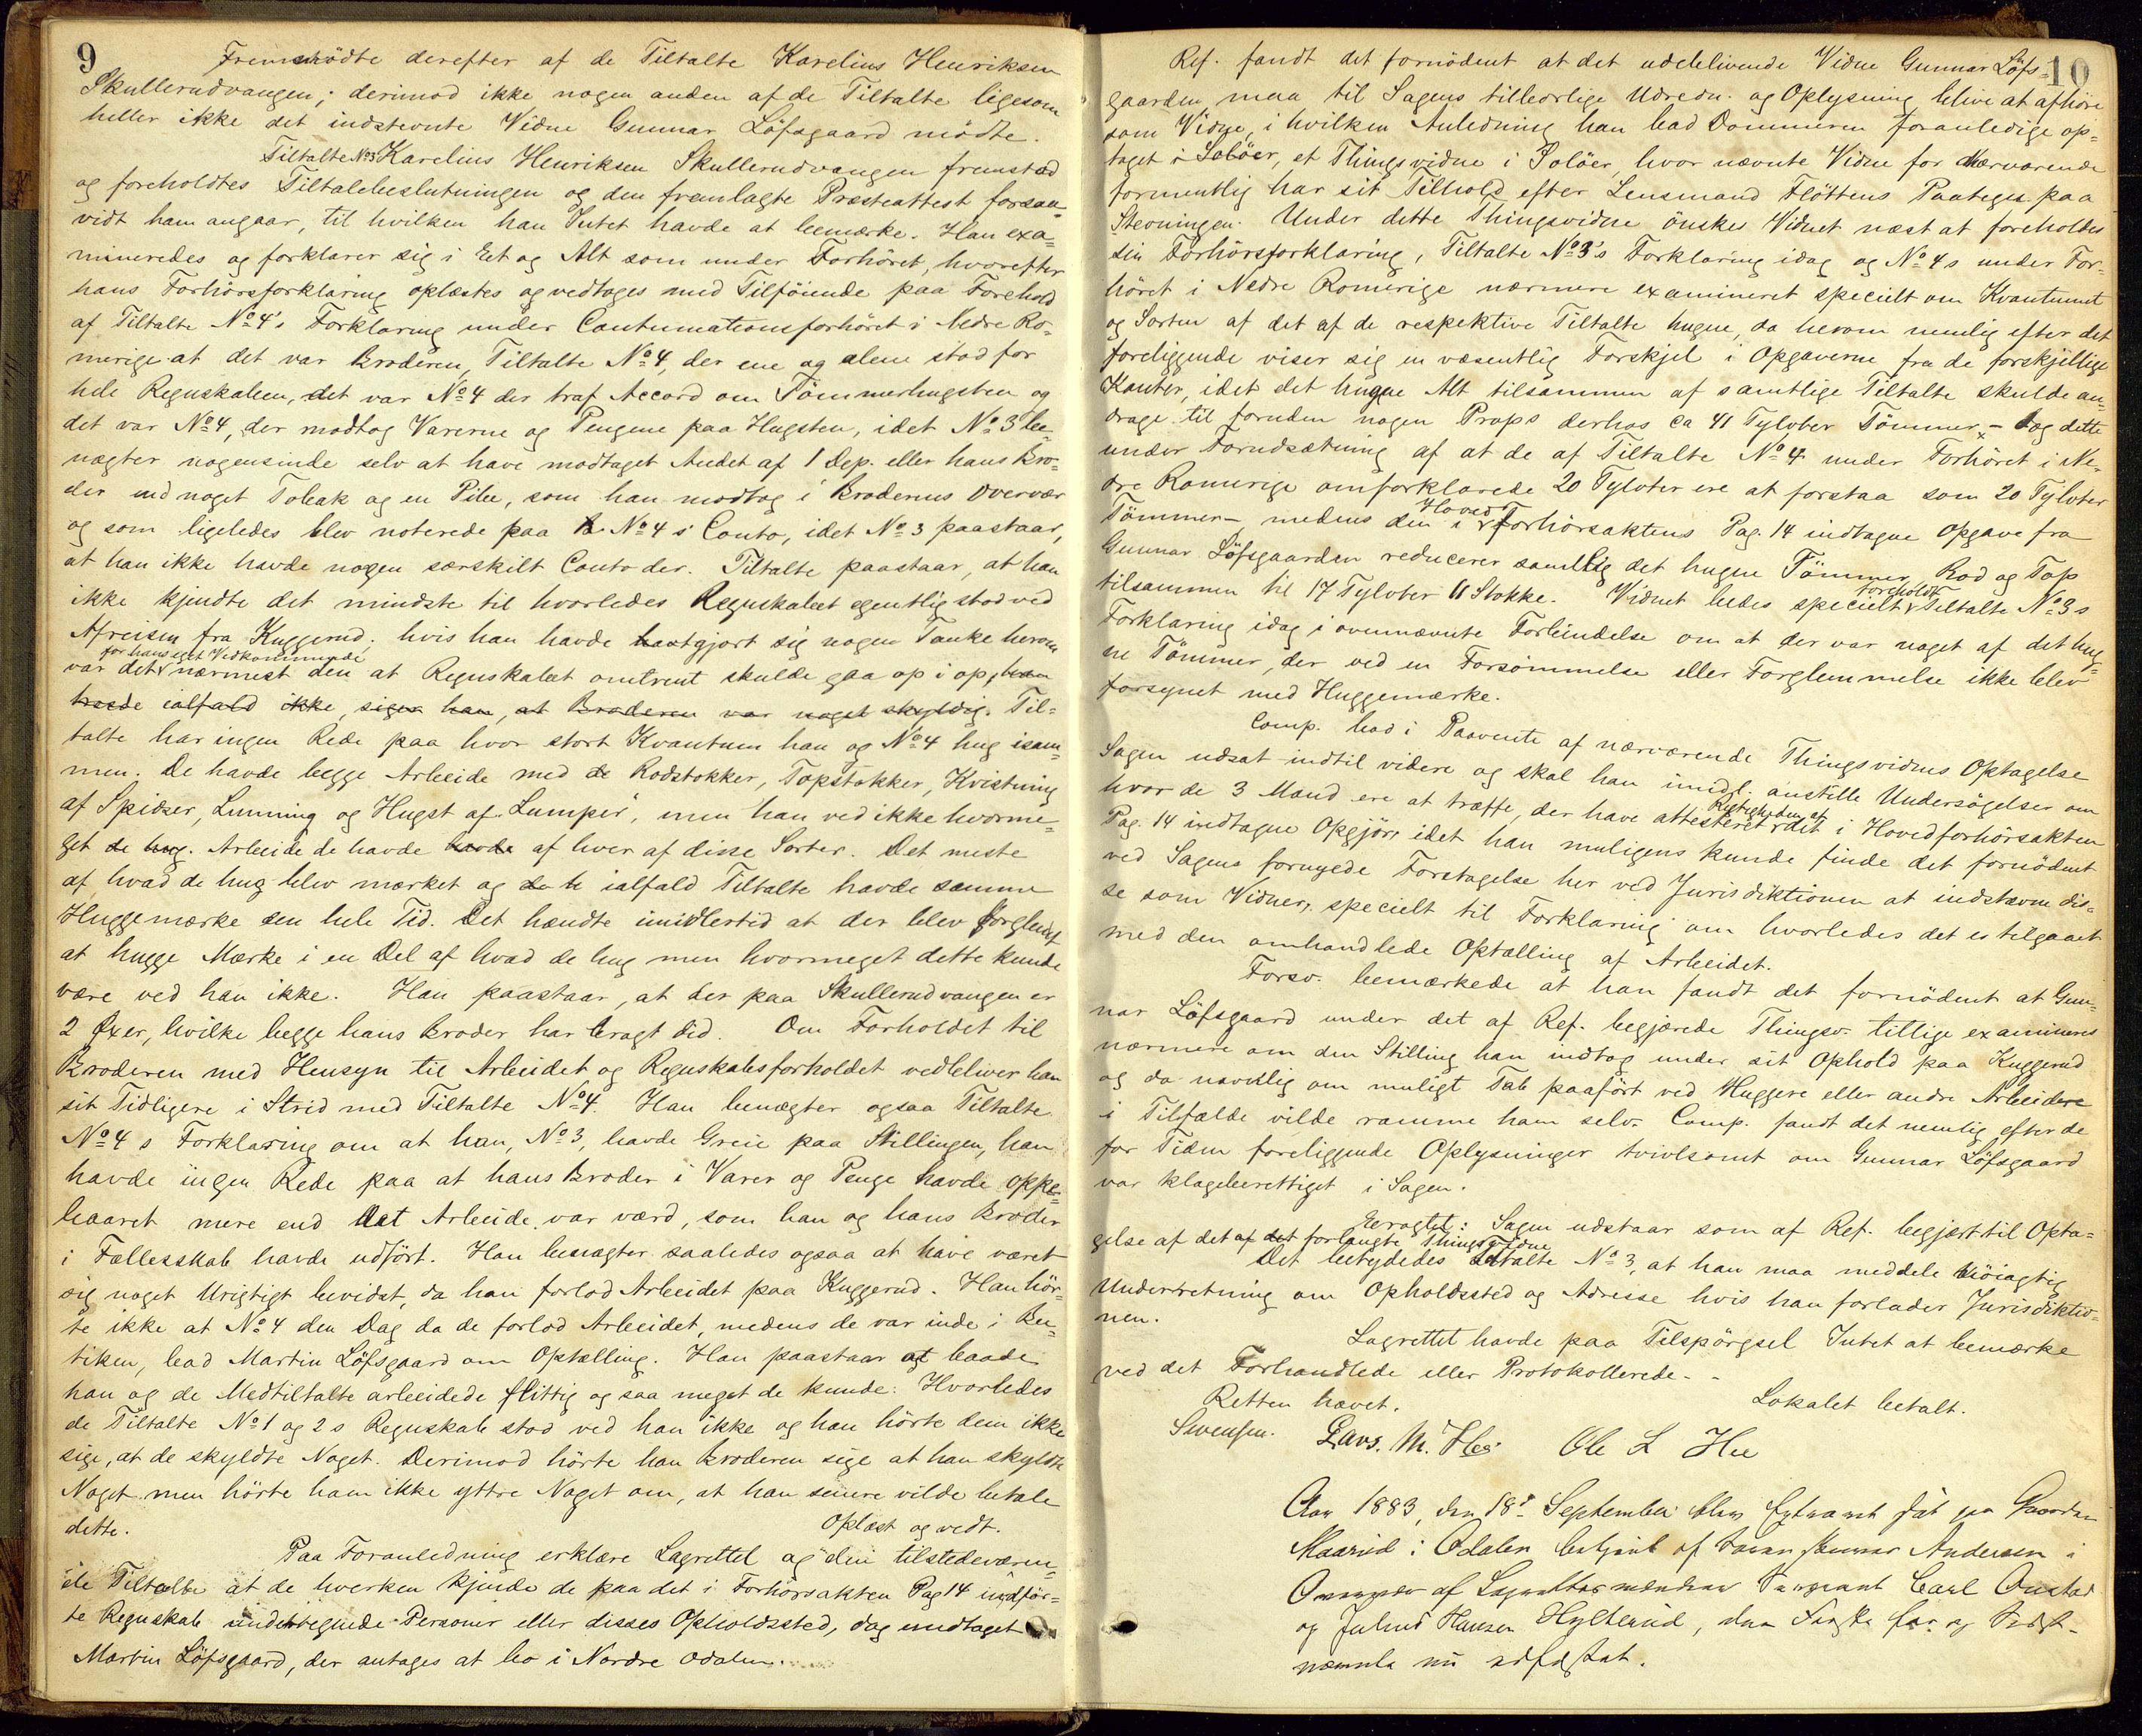 9
Fremmödte derefter af de Tiltalte Karelius Henriksen
Skullerudvangen; derimod ikke nogen anden af de Tiltalte ligesom
heller ikke det indstevnte Vidne Gunnar Löfsgaard mödte.
Tiltalte No 3 Karelius Henriksen Skullerudvangen fremstod
og foreholdtes Tiltalebeslutningen og den fremlagte Præsteattest forsaa-
vidt ham angaar, til hvilken han Intet havde at bemærke. Han exa-
mineredes og forklarer sig i Et og Alt som under Forhöret, hvorefter
hans Forhörsforklaring oplæstes og vedtoges med Tilföiende paa Forehold
af Tiltalte No 4's Forklaring under Contumationsforhöret i Nedre Ro-
merige at det var Broderen, Tiltalte No 4, der ene og alene stod for
hele Regnskaben, det var No 4 der traf Accord om Tömmerhugsten og
det var No 4, der modtog Varerne og Pengene paa Hugsten, idet No 3 be-
nægter nogensinde selv at have modtaget Andet af 1 Dep. eller hans Bro-
der end noget Tobak og en Pibe, som han modtog i Broderens Overvær
og som ligeledes blev noterede paa No 4 s Conto, idet No 3 paastaar,
at han ikke havde nogen særskilt Conto der. Tiltalte paastaar, at han
ikke kjendte det mindste til hvorledes Regnskabet egentlig stod ved
Afreisen fra Kuggerud; hvis han havde gjort sig nogen Tanke herom
for hans eget Vedkommende
var det nærmest den at Regnskabet omtrent skulde gaa op i op, han
troede ialfald ikke, siger han, at Broderen var noget skyldig. Til-
talte har ingen Rede paa hvor stort Kvantum han og No 4 hug isam-
men. De havde begge Arbeide med de Rodstokker, Topstokker, Kvistning
af Spidser, Lunning og Hugst af "Lumper", men han ved ikke hvorme-
get de hug. Arbeide de havde havde af hver af disse Sorter. Det meste
af hvad de hug blev mærket og ialfald Tiltalte havde samme
Huggemærke den hele Tid. Det hændte imidlertid at der blev forglemt
at hugge Mærke i en Del af hvad de hug men hvormeget dette kunde
være ved han ikke. Han paastaar, at der paa Skullerudvangen er
2 Øxer, hvilke begge hans Broder har bragt did. Om Forholdet til
Broderen med Hensyn til Arbeidet og Regnskabsforholdet vedbliver han
sit Tidligere i Strid med Tiltalte No 4. Han benægter ogsaa Tiltalte
No 4 s Forklaring om at han, No 3, havde Greie paa Stillingen, han
havde ingen Rede paa at hans Broder i Varer og Penge havde oppe-
baaret mere end det Arbeide var værd, som han og hans Broder
i Fællesskab havde udfört. Han benægter saaledes ogsaa at have været
sig noget Urigtigt bevidst, da han forlod Arbeidet paa Kuggerud. Han hör-
te ikke at No 4 den Dag da de forlod Arbeidet, medens de var inde i Bu-
tiken, bad Martin Löfsgaard om Optælling. Han paastaar at baade
han og de Medtiltalte arbeidede flittig og saa meget de kunde. Hvorledes
de Tiltalte No 1 og 2 s Regnskab stod ved han ikke og han hörte dem ikke
sige, at de skyldte Noget. Derimod hörte han Broderen sige at han skyldte
Noget men hörte ham ikke yttre Noget om, at han senere vilde betale
dette. Oplæst og vedt.
Paa Foranledning erklære Lagrettet og den tilstedeværen-
de Tiltalte at de hverken kjende de paa det i Forhörsakten Pag 14 indför-
te Regnskab undertegnede Personer eller disses Opholdssted, dog undtaget
Martin Löfsgaard, der antages at bo i Nordre Odalen.
10
Ref. fandt det fornödent at det udeblivende Vidne Gunnar Löfs-
gaarden maa til Sagens tilbörlige Udredn. og Oplysning blive at afhöre
som Vidne, i hvilken Anledning han bad Dommeren foranledige op-
taget i Solöer, et Thingsvidne i Solöer, hvor nævnte Vidne for Nærværende
formentlig har sit Tilhold efter Lensmand Flöttens Paategn paa
Stevningen. Under dette Thingsvidne önskes Vidnet næst at foreholdes
sin Forhörsforklaring, Tiltalte No 3's Forklaring idag og No 4 s under For-
höret i Nedre Romerige nærmere examineret specielt om Kvantumet
og Sorten af det af de respektive Tiltalte hugne, da herom nemlig efter det
foreliggende viser sig en væsentlig Forskjel i Opgaverne fra de forskjellige
Kanter, idet det hugne Alt tilsammen af samtlige Tiltalte skulde an-
drage til foruden nogen Props derhos ca 41 Tylvter Tömmer, - dog dette
under Forudsætning af at de af Tiltalte No 4 under Forhöret i Ne-
dre Romerige omforklarede 20 Tylvter ere at forstaa som 20 Tylvter
Hoved
Tömmer - medens den i Forhörsaktens Pag. 14 indtagne Opgave fra
Gunnar Löfsgaarden reducerer samtlig det hugne Tömmer, Rod og Top
tilsammen til 17 Tylvter 11 Stokke. Vidnet bedes specielt foreholdt Tiltalte No 3 s
Forklaring idag i ovennævnte Forbindelse om at der var noget af det hug-
ne Tömmer, der ved en Forsömmelse eller Forglemmelse ikke blev
forsynet med Huggemærke.
Comp. bad i Paavente af nærværende Thingsvidnes Optagelse
Sagen udsat indtil videre og skal han imidl. anstille Undersögelser om
hvor de 3 Mænd ere at træffe, der have attesteret Rigtigheden af det i Hovedforhörsakten
Pag. 14 indtagne Opgjör, idet han muligens kunde finde det fornödent
ved Sagens fornyede Foretagelse her ved Jurisdiktionen at indstævne dis-
se som Vidner, specielt til Forklaring om hvorledes det er tilgaaet
med den omhandlede Optælling af Arbeidet.
Forsv. bemærkede at han fandt det fornödent at Gun-
nar Löfsgaard under det af Ref. begjærede Thingsv. tillige examineres
nærmere om den Stilling han indtog under sit Ophold paa Kuggerud
og da navnlig om muligt Tab paafört ved Huggere eller andre Arbeidere
i Tilfælde vilde ramme ham selv. Comp. fandt det nemlig efter de
for Tiden foreliggende Oplysninger tvivlsomt om Gunnar Löfsgaard
var klageberettiget i Sagen.
Eragtet: Sagen udstaar som af Ref. begjært til Opta-
gelse af det af det forlangte Thingsvidne
Det betydedes Tiltalte No 3, at han maa meddele nöiagtig
Underretning om Opholdssted og Adresse hvis han forlader Jurisdiktio-
nen.
Lagrettet havde paa Tilspörgsel Intet at bemærke
ved det Forhandlede eller Protokollerede. -
Retten hævet. Lokalet betalt.
Svensen. Lars. M. Ole L Hee
Aar 1883, den 18de September blev Extraret sat paa Gaarden
Maarud i Odalen betjent af Andersen i
Overvær af Lagrettesmændene Sergeant Carl Onstad
og Julius Hansen Hylterud,
nævnte nu edfæstet.